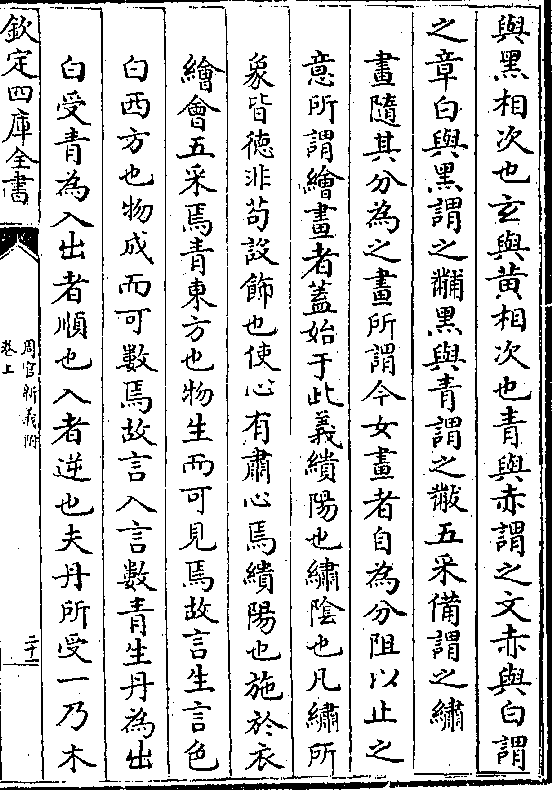 與黑相次也玄與黃相次也青與赤謂之文赤與白謂
之章白與黑謂之黼黑與青謂之黻五采備謂之繡
畫隨其分為之畫所謂今女畫者自為分阻以止之
意所謂繪畫者蓋始于此義繢陽也繡陰也凡繡所
象皆德非苟設飾也使心有肅心焉繢陽也施於衣
繪會五采焉青東方也物生而可見焉故言生言色
白西方也物成而可數焉故言入言數青生丹為出
白受青為入出者順也入者逆也夫丹所受一乃木
欽定四庫全書
周官新義附
卷上
二十二